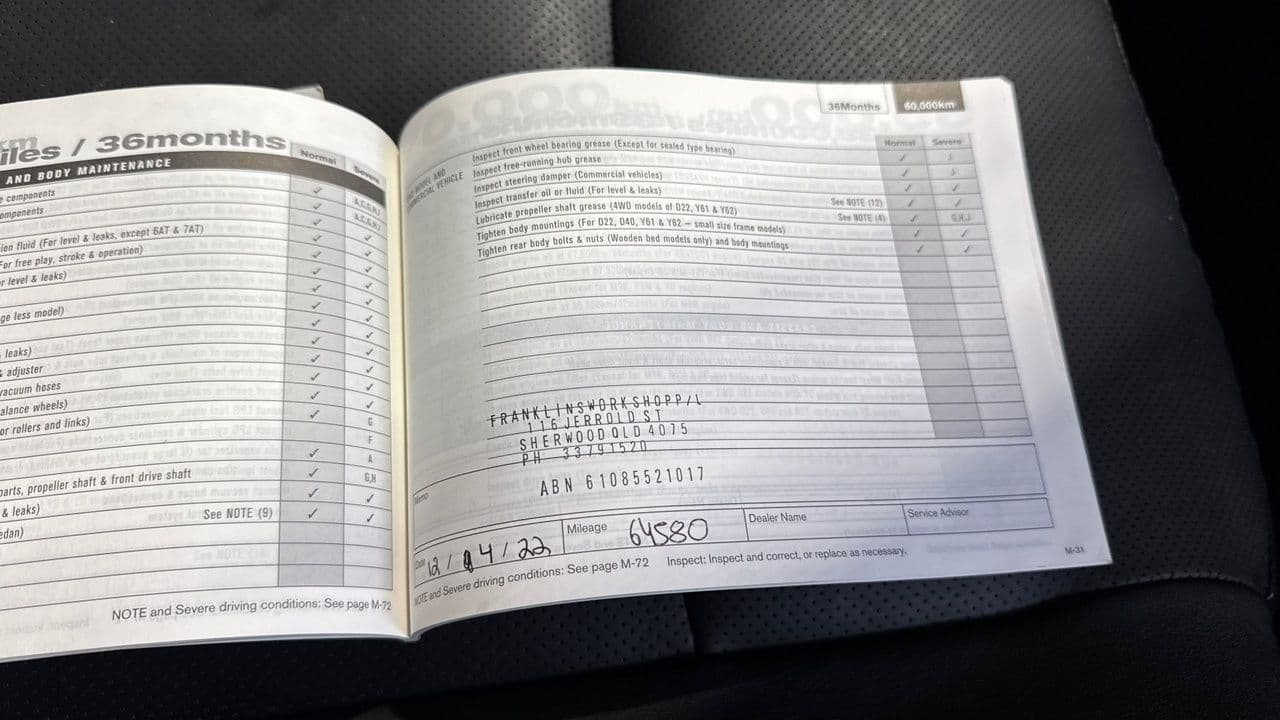 iles / 36months
AND BODY MAINTENANCE
Normal
Severe
components
A,C,G,H,J
omponents
A,C,G,H,J
ion fluid (For level & leaks, except 6AT & 7AT)
For free play, stroke & operation)
r level & leaks)
ge less model)
leaks)
& adjuster
vacuum hoses
alance wheels)
G
or rollers and links)
F
A
parts, propeller shaft & front drive shaft
G,H
& leaks)
edan)
See NOTE (9)
NOTE and Severe driving conditions: See page M-72
36Months
60,000km
Normal
Severe
MODEL AND
COMMERCIAL VEHICLE
Inspect front wheel bearing grease (Except for sealed type bearing)
Inspect free-running hub grease
Inspect steering damper (Commercial vehicles)
Inspect transfer oil or fluid (For level & leaks)
See NOTE (12)
Lubricate propeller shaft grease (4WD models of D22, Y61 & Y62)
See NOTE (4)
G,H,J
Tighten body mountings (For D22, D40, Y61 & Y62 – small size frame models)
Tighten rear body bolts & nuts (Wooden bed models only) and body mountings
FRANKLINSWORKSHOPP/L
116JERROLD ST
SHERWOODQLD4075
PH 33791520
ABN 61085521017
Memo
Date 12/04/22
Mileage 64580
Dealer Name
Service Advisor
NOTE and Severe driving conditions: See page M-72
Inspect: Inspect and correct, or replace as necessary.
M-31